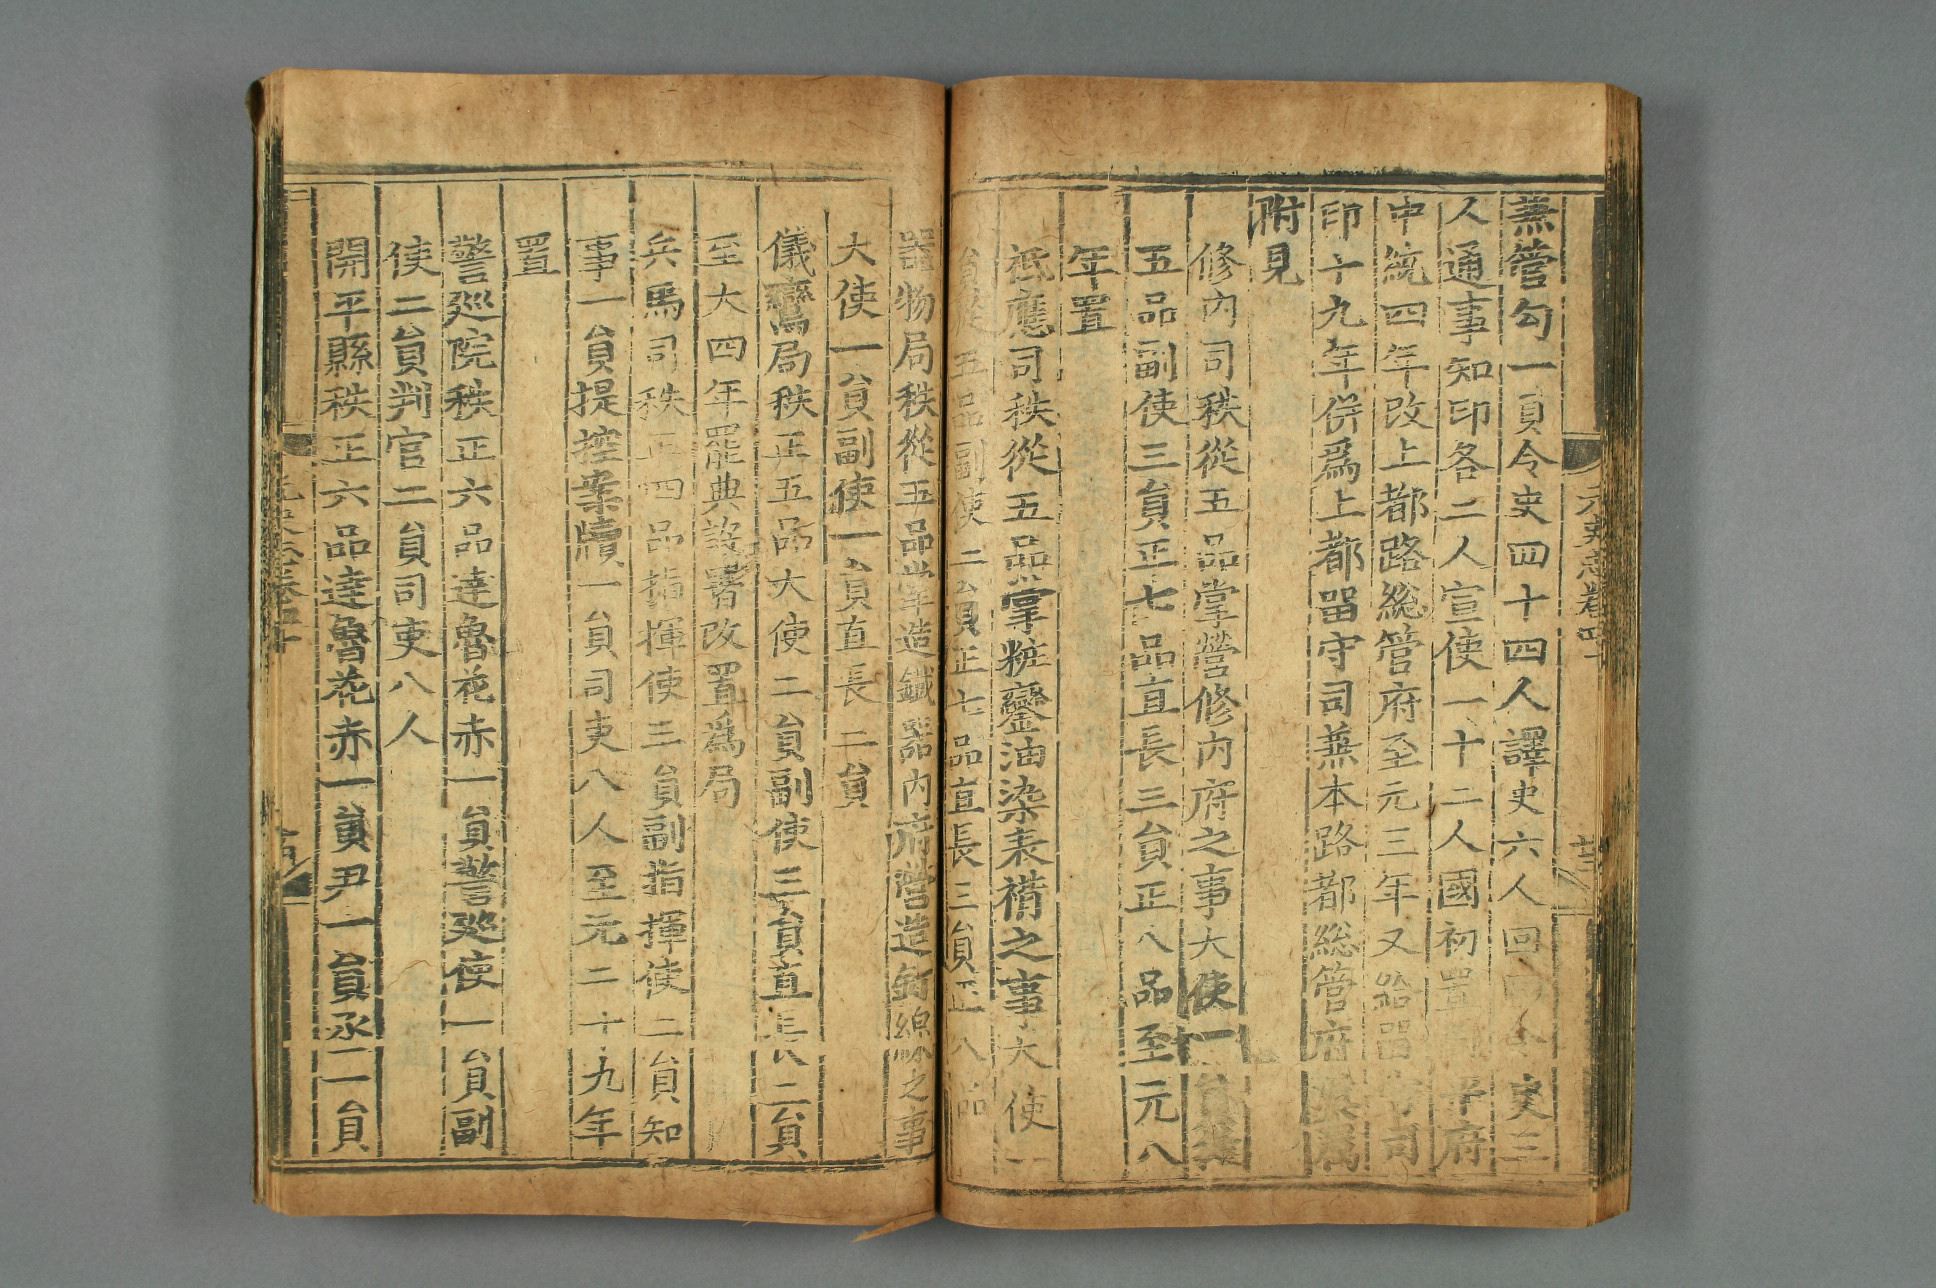 元史志卷四十
兼管勾一員令史四十四人譯史六人回回令史三
人通事知印各二人宣使一十二人國初置開平府
中統四年改上都路総管府至元三年又給留守司
印十九年併爲上都留守司兼本路都総管府
附見
修內司秩從五品掌營修內府之事大使一員
五品副使三員正七品直長三員正八品至元八
年置
祗應司秩從五品掌粧鑾油染表褙之事大使一
五品副使二員正七品直長三員正八品
器物局秩從五品掌造鐵器內府營造釘線之事
大使一員副使一員直長二員
儀鸞局秩正五品大使二員副使三員直長二員
至大四年罷典設署改置爲局
兵馬司秩正四品指揮使三員副指揮使二員知
事一員提控案牘一員司吏八人至元二十九年
置
警廵院秩正六品達魯花赤一員警廵使一員副
使二員判官二員司吏八人
開平縣秩正六品達魯花赤一員尹一員丞一員
元史志卷四十